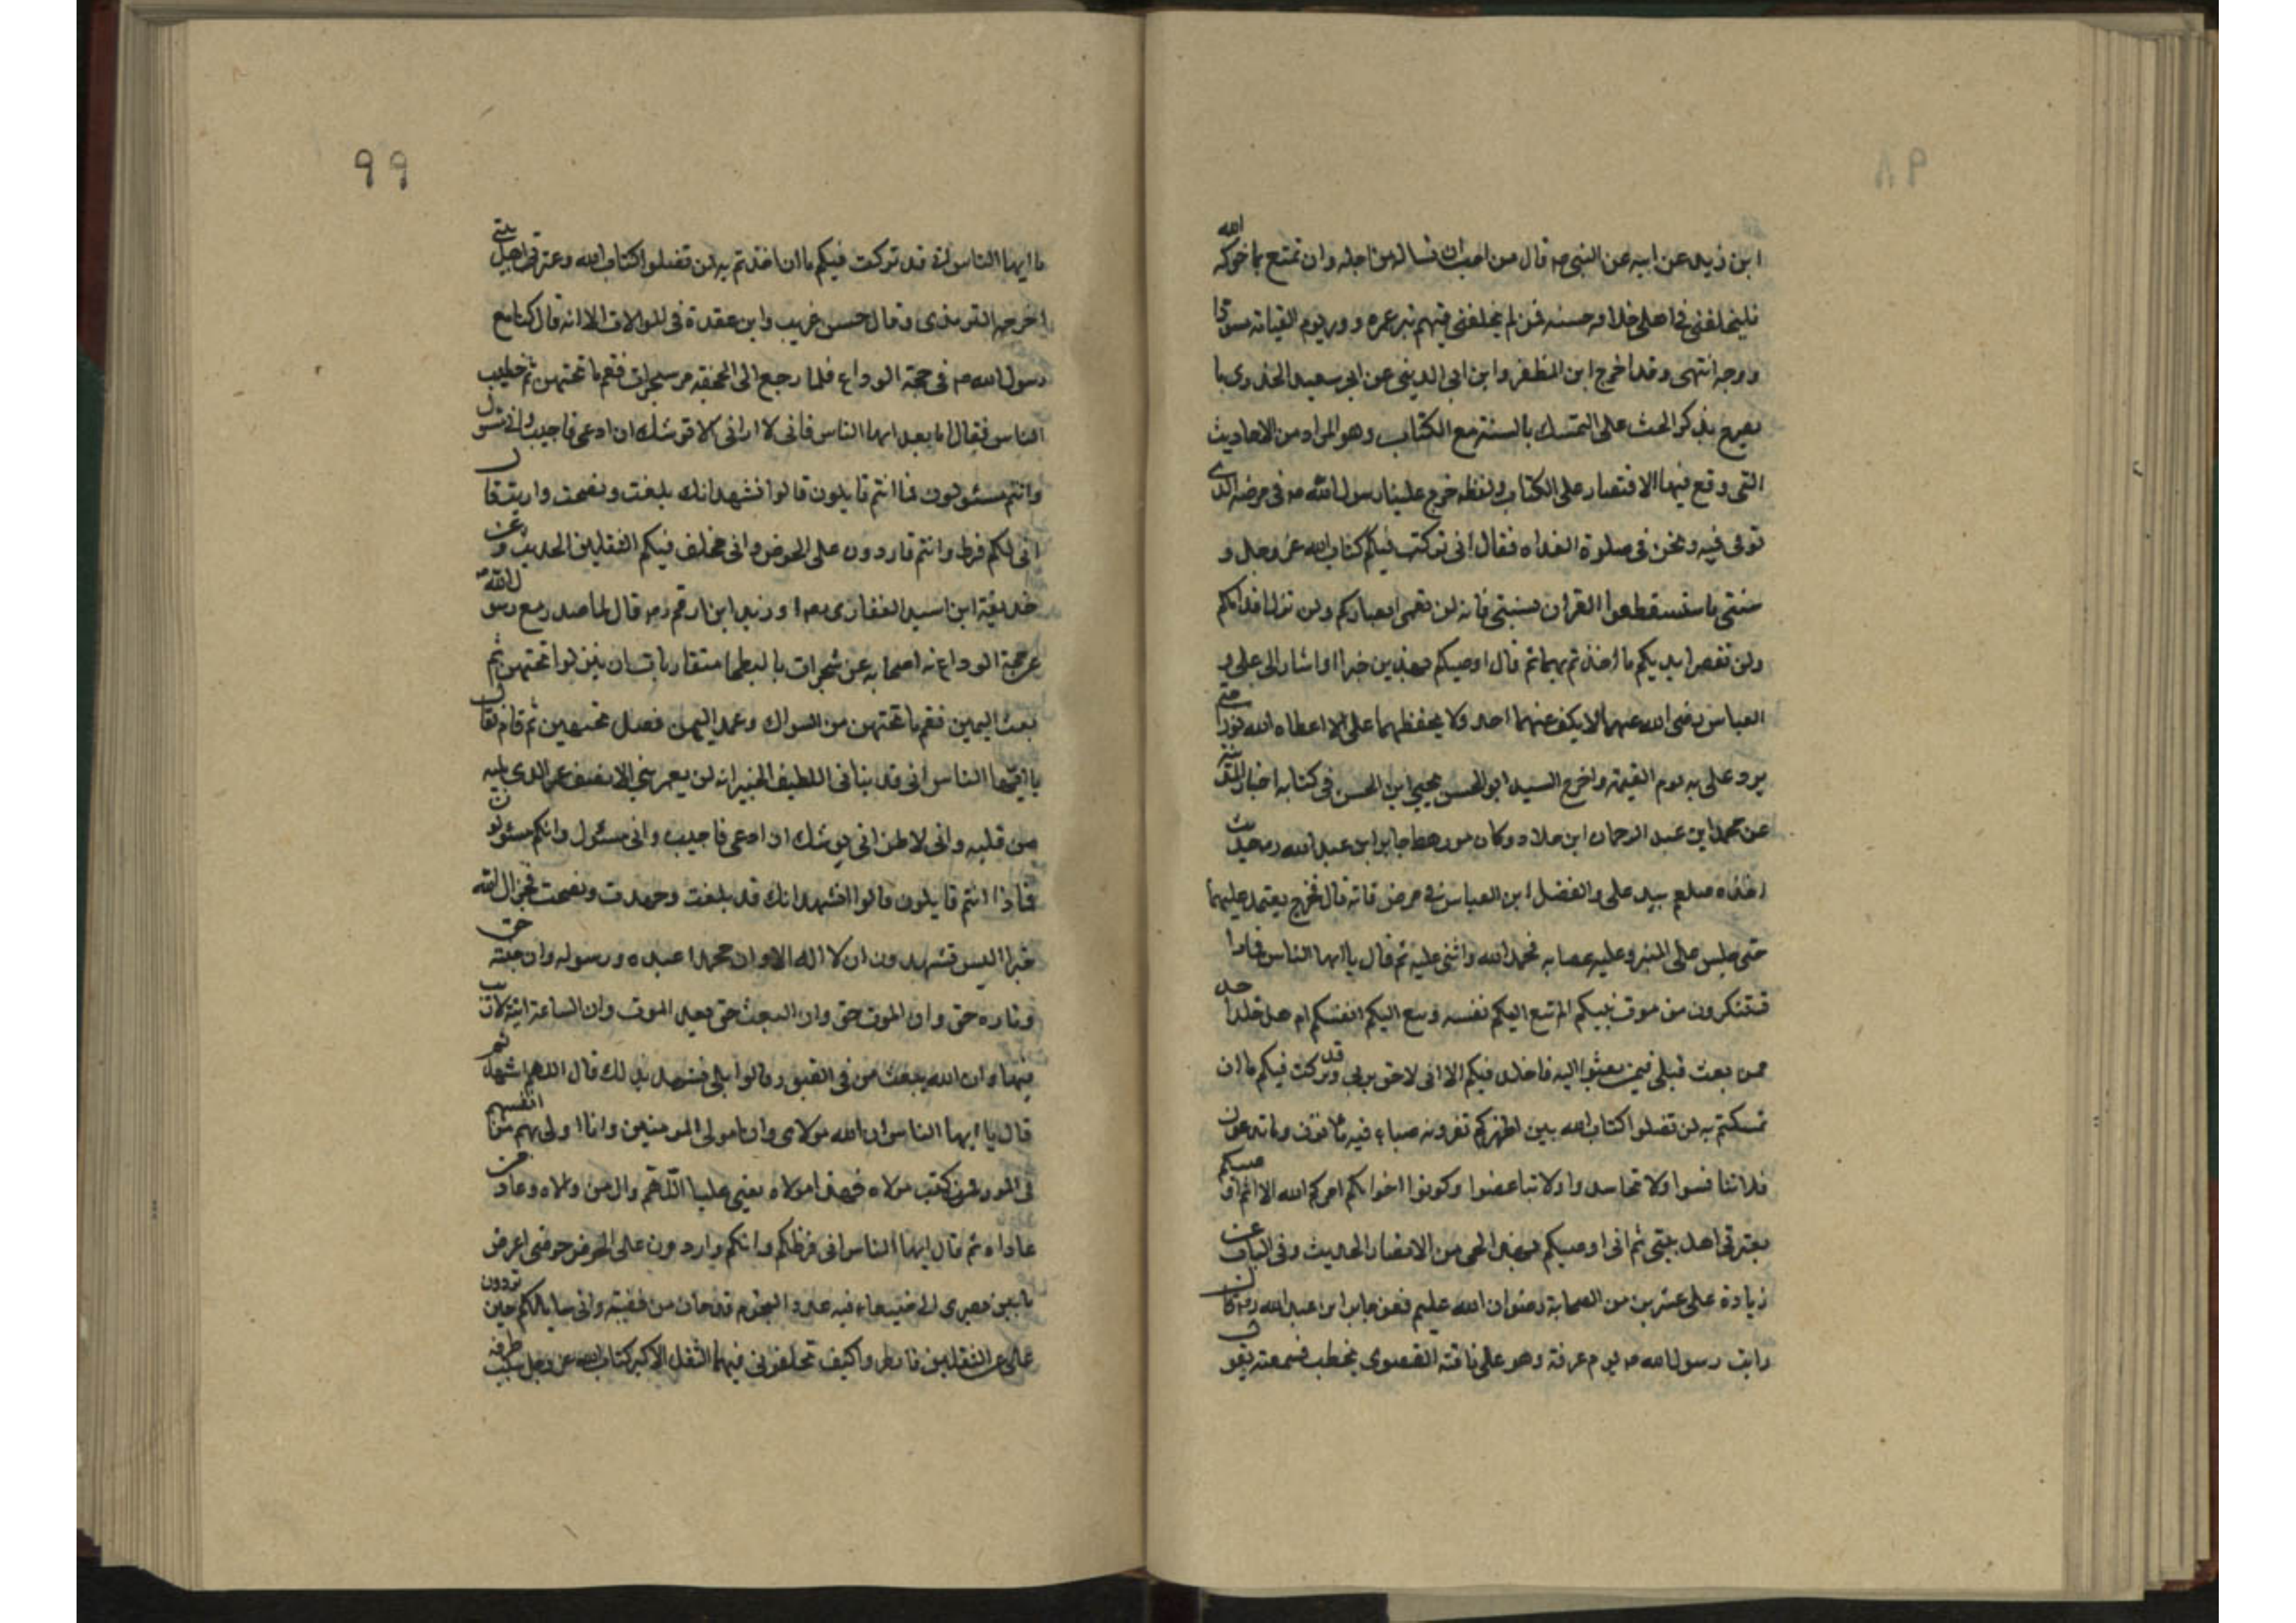 ٩٨
ابن زيد عن ابيه عن النبى ص قال من احب ان ينسا له من اجله وان تمتع بما خوله الله
فليخلفنى فى اهلى خلافه حسنه فمن لم يخلفنى فيهم تبر عمره وورد يوم القيامه مسودا
وجه انتهى وقد اخرج ابن المظفر وابن ابى الدينى عن ابى سعيد الخدرى ما
يصرح بذكر الحث على التمسك بالسنة مع الكتاب وهو المراد من الاحاديث
التى وقع فيها الاقتصار على الكتاب ولفظه خرج علينا رسول الله ص فى مرضه الذى
توفى فيه ونحن فى صلوة الغداه فقال انى تركت فيكم كتاب الله عز وجل و
سنتى فاستنطقوا القران بسنتى فانه لن تعمى ابصاركم ولن تزل اقدامكم
ولن تقصر ايديكم ما اخذتم بهما ثم قال اوصيكم بهذين خيرا واشار الى على و
العباس رضى الله عنهما لا يكف عنهما احد ولا يحفظهما على الا اعطاه الله نورا حتى
يرد على به يوم القيمة واخرج السيد ابو الحسن يحيى ابن الحسن فى كتابه اخبار المدينة
عن محمد ابن عبد الرحمان ابن خلاد وكان من رهط جابر ابن عبد الله رض حديث
اخذه صلعم بيد على والفضل ابن العباس فى مرض فاته قال فخرج يعتمد عليهما
حتى جلس على المنبر وعليه عصابه فحمد الله واثنى عليه ثم قال يا ايها الناس فماذا
تستنكرون من موت نبيكم الم تنع اليكم نفسه وينع اليكم انفسكم ام هل خلد احد
ممن بعث قبلى فيمن بعثوا اليه فاخلد فيكم الا انى لاحق بربى وقد تركت فيكم ما ان
تمسكتم به لن تضلوا كتاب الله بين اظهركم تقرونه صباء فيه ما توف وما تدعون
فلا تنافسوا ولا تحاسدوا ولا تباغضوا وكونوا اخوانكم امركم الله الا ثم اوصيكم
بعترتى اهل بيتى ثم انى اوصيكم بهذا الحى من الانصار الحديث وفى الباب عن
زيادة على عشرين من الصحابة رضوان الله عليهم فعن جابر ابن عبد الله رض قال
رايت رسول الله ص يوم عرفة وهو على ناقته القصوى يخطب فسمعته يقول
٩٩
يا ايها الناس انى قد تركت فيكم ما ان اخذتم به لن تضلوا كتاب الله وعترتى اهل بيتى
اخرجه الترمذى وقال حسن غريب وابن عقدة فى الموالات الا انه قال كنا مع
رسول الله ص فى حجة الوداع فلما رجع الى الجحفه مر بشجرات فقم ما تحتهن ثم خطب
الناس فقال اما بعد ايها الناس فانى لا ارانى الا توشك ان ادعى فاجيب وانى مسئول
وانتم مسئولون فما انتم قايلون قالوا نشهد انك بلغت ونصحت واديت قال
انى لكم فرط وانتم واردون على الحوض وانى مخلف فيكم الثقلين الحديث وعن
حذيفة ابن اسيد الغفارى رض او زيد ابن ارقم رض قال لما صدر مع رسول الله ص
عن حجة الوداع نه اصحابه عن شجرات بالبطحا متقاربات ان ينزلوا تحتهن ثم
بعث اليهن فقم ما تحتهن من الشواك وعمد اليهن فصل تحتهن ثم قام فقال
يا ايها الناس انى قد نبانى اللطيف الخبير انه لن يعمر نبى الا نصف عمر الذى يليه
من قبله وانى لاظن انى يوشك ان ادعى فاجيب وانى مسئول وانكم مسئولون
فماذا انتم قايلون قالوا نشهد انك قد بلغت وجهدت ونصحت فجزاك الله
خيرا اليس تشهدون ان لا اله الا هو ان محمدا عبده ورسوله وان جنته حق
وناره حق وان الموت حق وان البعث حق بعد الموت وان الساعة اتية لا ريب
فيها وان الله يبعث من فى القبور قالوا بلى نشهد بذلك قال اللهم اشهد ثم
قال يا ايها الناس ان الله مولاى وانا مولى المومنين وانا اولى بهم من انفسهم
فمن كنت مولاه فهذا مولاه يعنى عليا اللهم وال من والاه وعاد من
عاداه ثم قال ايها الناس انى فرطكم وانكم واردون على الحوض حوضى اعرض
ما بين بصرى الى صنعاء فيه عدد النجوم قدحان من فضة وانى سايلكم حين تردون
على عن الثقلين فانظروا كيف تخلفونى فيهما الثقل الاكبر كتاب الله عز وجل سبب طرفه